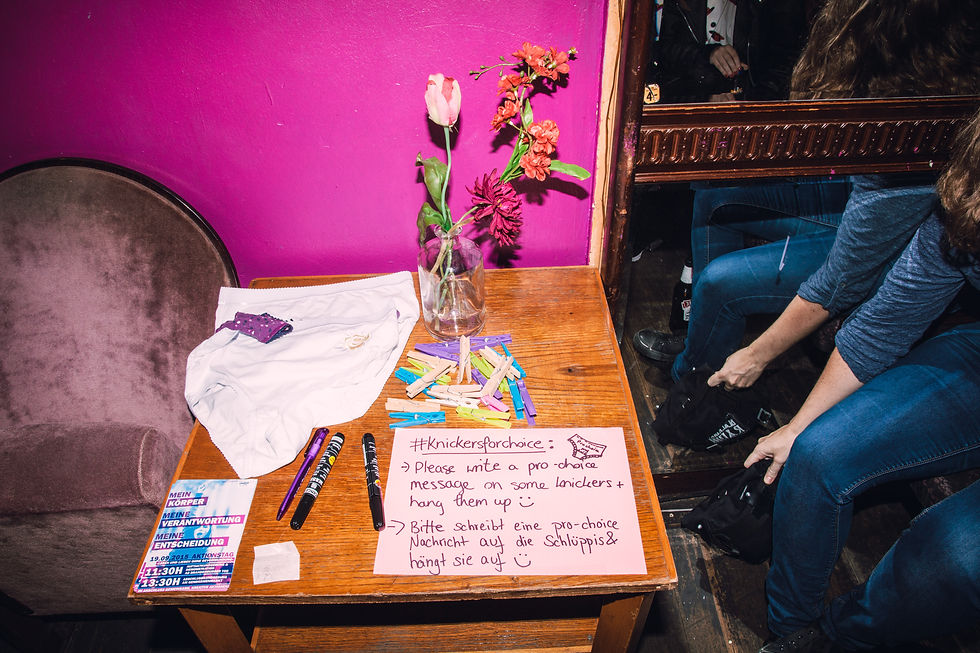 #knickersforchoice:
→ Please write a pro-choice
message on some knickers +
hang them up
→ Bitte schreibt eine pro-choice
Nachricht auf die Schlüppis &
hängt sie auf
MEIN
KÖRPER
MEINE
VERANTWORTUNG
MEINE
ENTSCHEIDUNG
19.09.2015 AKTIONSTAG
11:30H
13:30H